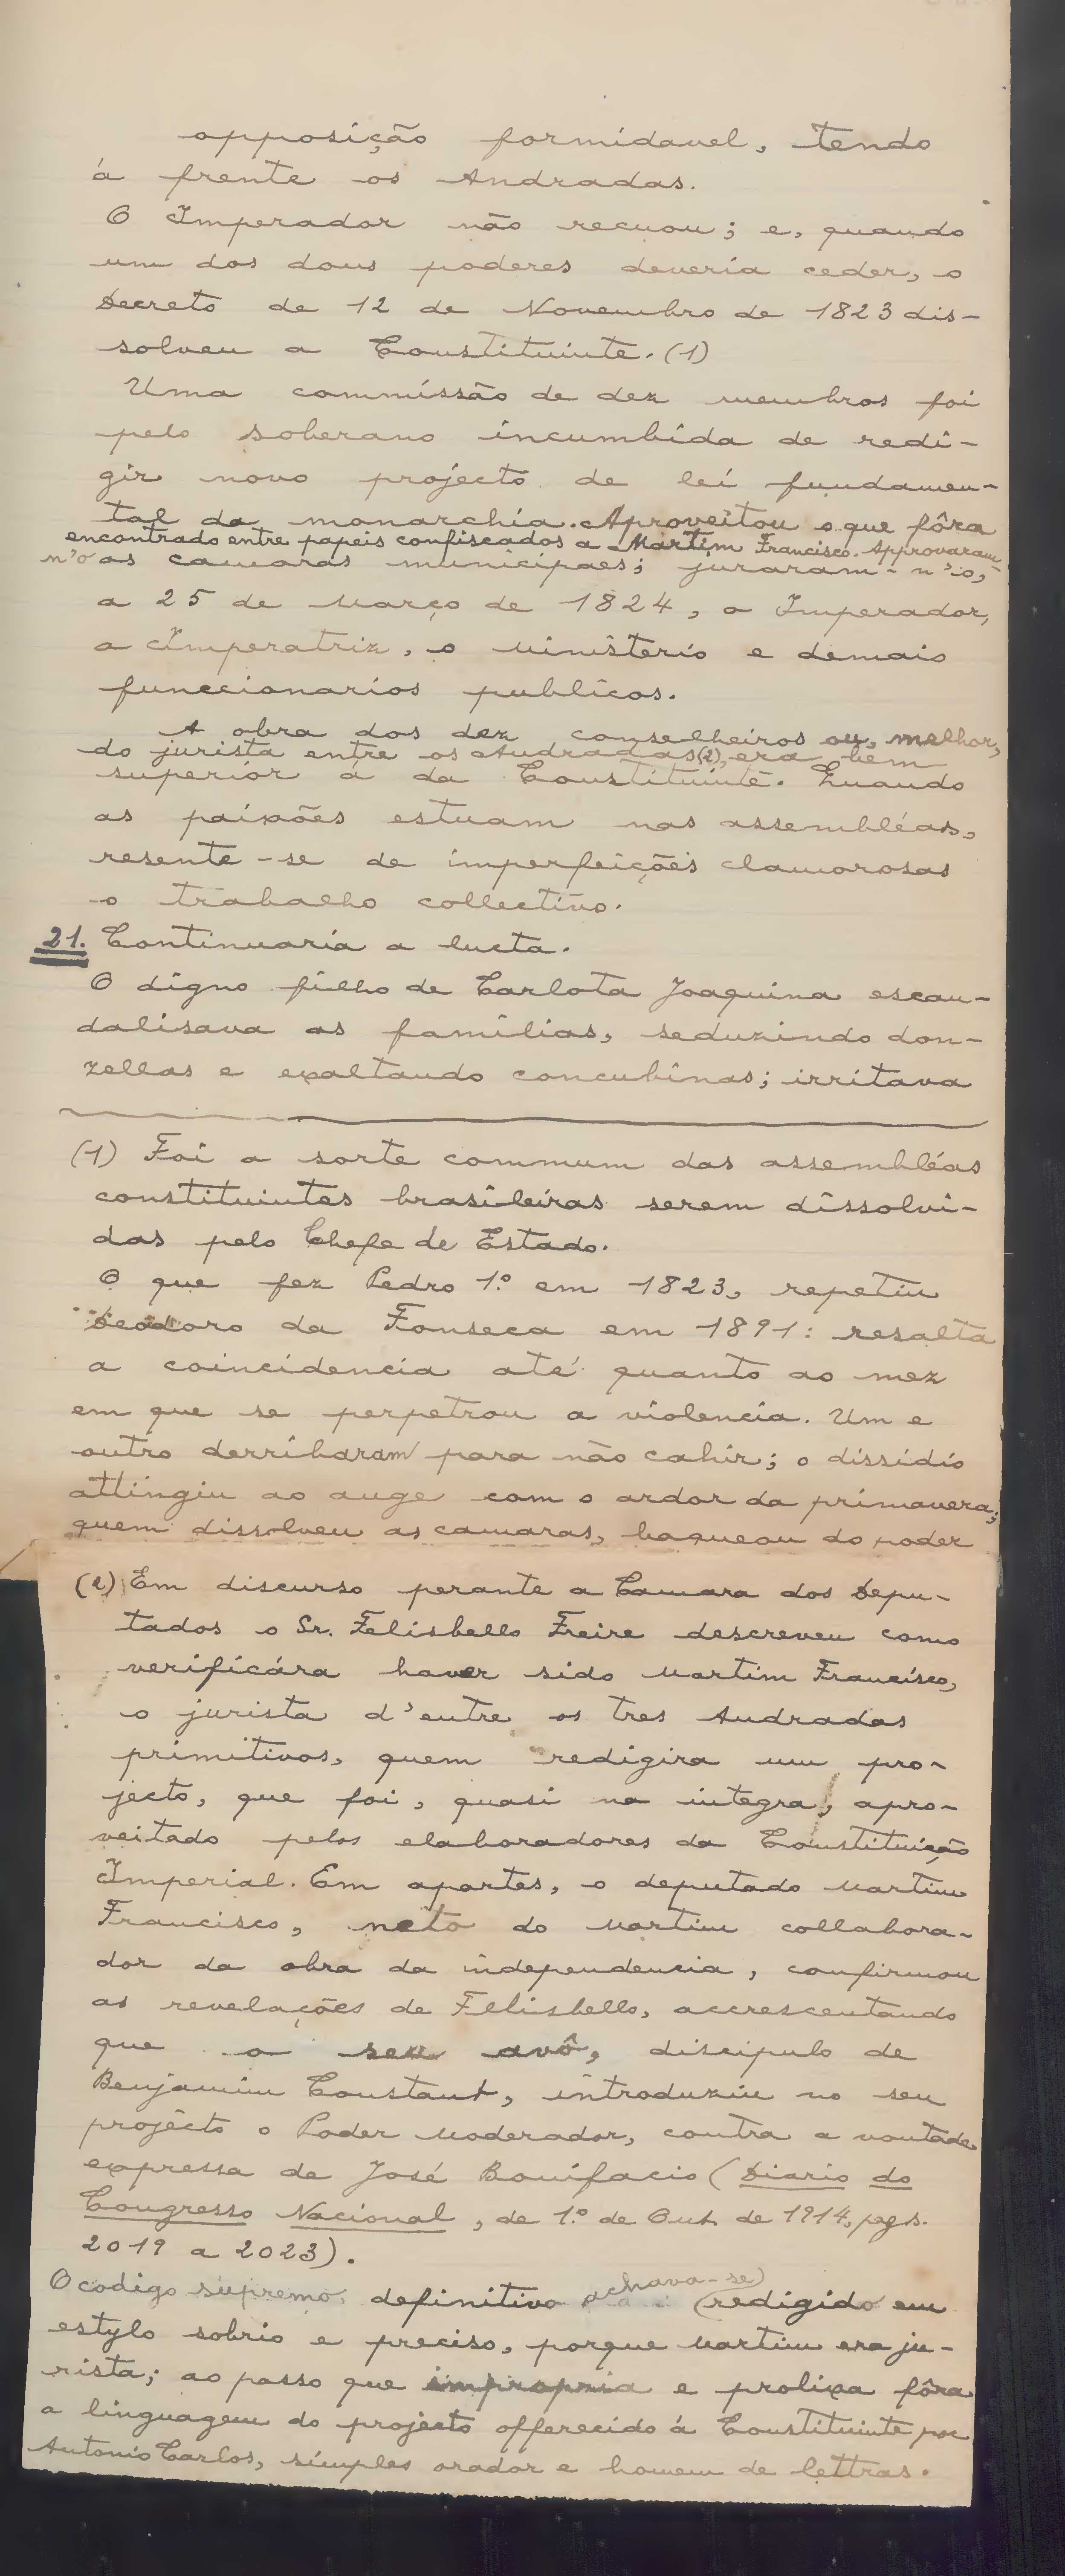 opposição formidavel, tendo
á frente os Andradas.
O Imperador não recuou; e, quando
um dos dous poderes deveria ceder, o
Decreto de 12 de Novembro de 1823 dis-
solveu a Constituinte. (1)
Uma commissão de dez membros foi
pelo soberano incumbida de redi-
gir novo projecto de lei fundamen-
tal da monarchia. Aproveitou o que fôra
encontrado entre papeis confiscados a Martim Francisco. Approvaram-
n'o as camaras municipaes; juraram-n'o,
a 25 de Março de 1824, o Imperador,
a Imperatriz, o Ministerio e demais
funccionarios publicos.
A obra dos dez conselheiros ou, melhor,
do jurista entre os Andradas (2), era bem
superior á da Constituinte. Quando
as paixões estuam nas assembléas,
resente-se de imperfeições clamorosas
o trabalho collectivo.
21. Continuaria a lucta.
O digno filho de Carlota Joaquina escan-
dalisava as familias, seduzindo don-
zellas e exaltando concubinas; irritava
(1) Foi a sorte commum das assembléas
constituintes brasileiras serem dissolvi-
das pelo Chefe de Estado.
O que fez Pedro 1º em 1823, repetiu
Deodoro da Fonseca em 1891: resalta
a coincidencia até quanto ao mez
em que se perpetrou a violencia. Um e
outro derribaram para não cahir; o dissidio
attingiu ao auge com o ardor da primavera;
quem dissolveu as camaras, baqueou do poder
(2) Em discurso perante a Camara dos Depu-
tados o Sr. Felisbello Freire descreveu como
verificára haver sido Martim Francisco,
o jurista d'entre os tres Andradas
primitivos, quem redigira um pro-
jecto, que foi, quasi na integra, apro-
veitado pelos elaboradores da Constituição
Imperial. Em apartes, o deputado Martim
Francisco, neto do Martim collabora-
dor da obra da independencia, confirmou
as revelações de Felisbello, accrescentando
que o seu avô, discipulo de
Benjamim Constant, introduziu no seu
projécto o Poder Moderador, contra a vontade
expressa de José Bonifacio (Diario do
Congresso Nacional, de 1º de Out. de 1914, pags.
2019 a 2023).
O codigo supremo definitivo achava-se redigido em
estylo sobrio e preciso, porque Martim era ju-
rista; ao passo que impropria e prolixa fôra
a linguagem do projecto offerecido á Constituinte por
Antonio Carlos, simples orador e homem de lettras.